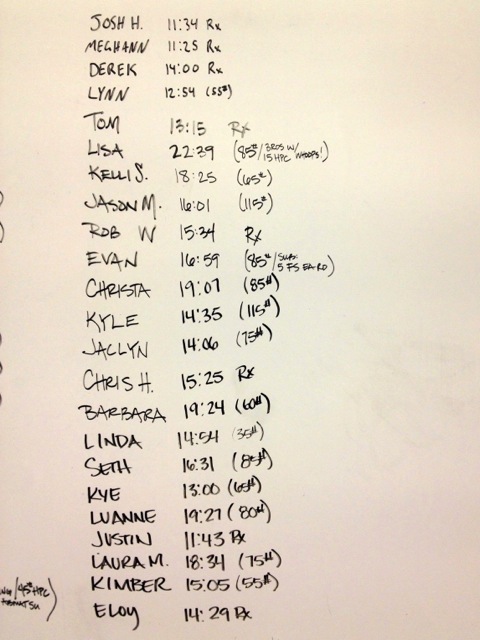 JOSH H. 11:34 Rx
MEGHANN 11:25 Rx
DEREK 14:00 Rx
LYNN 12:54 (55#)
TOM 13:15 Rx
LISA 22:39 (85#/3RDS W/ 15 HPC WHOOPS!)
KELLI S. 18:25 (65#)
JASON M. 16:01 (115#)
ROB W 15:34 Rx
EVAN 16:59 (85#/SUBS: 5 FS EA RD)
CHRISTA 19:07 (85#)
KYLE 14:35 (115#)
JACLYN 14:06 (75#)
CHRIS H. 15:25 Rx
BARBARA 19:24 (60#)
LINDA 14:54 (35#)
SETH 16:31 (85#)
KYE 13:00 (65#)
LUANNE 19:27 (80#)
JUSTIN 11:43 Rx
LAURA M. 18:34 (75#)
KIMBER 15:05 (55#)
/95# HPC
ELOY 14:29 Rx